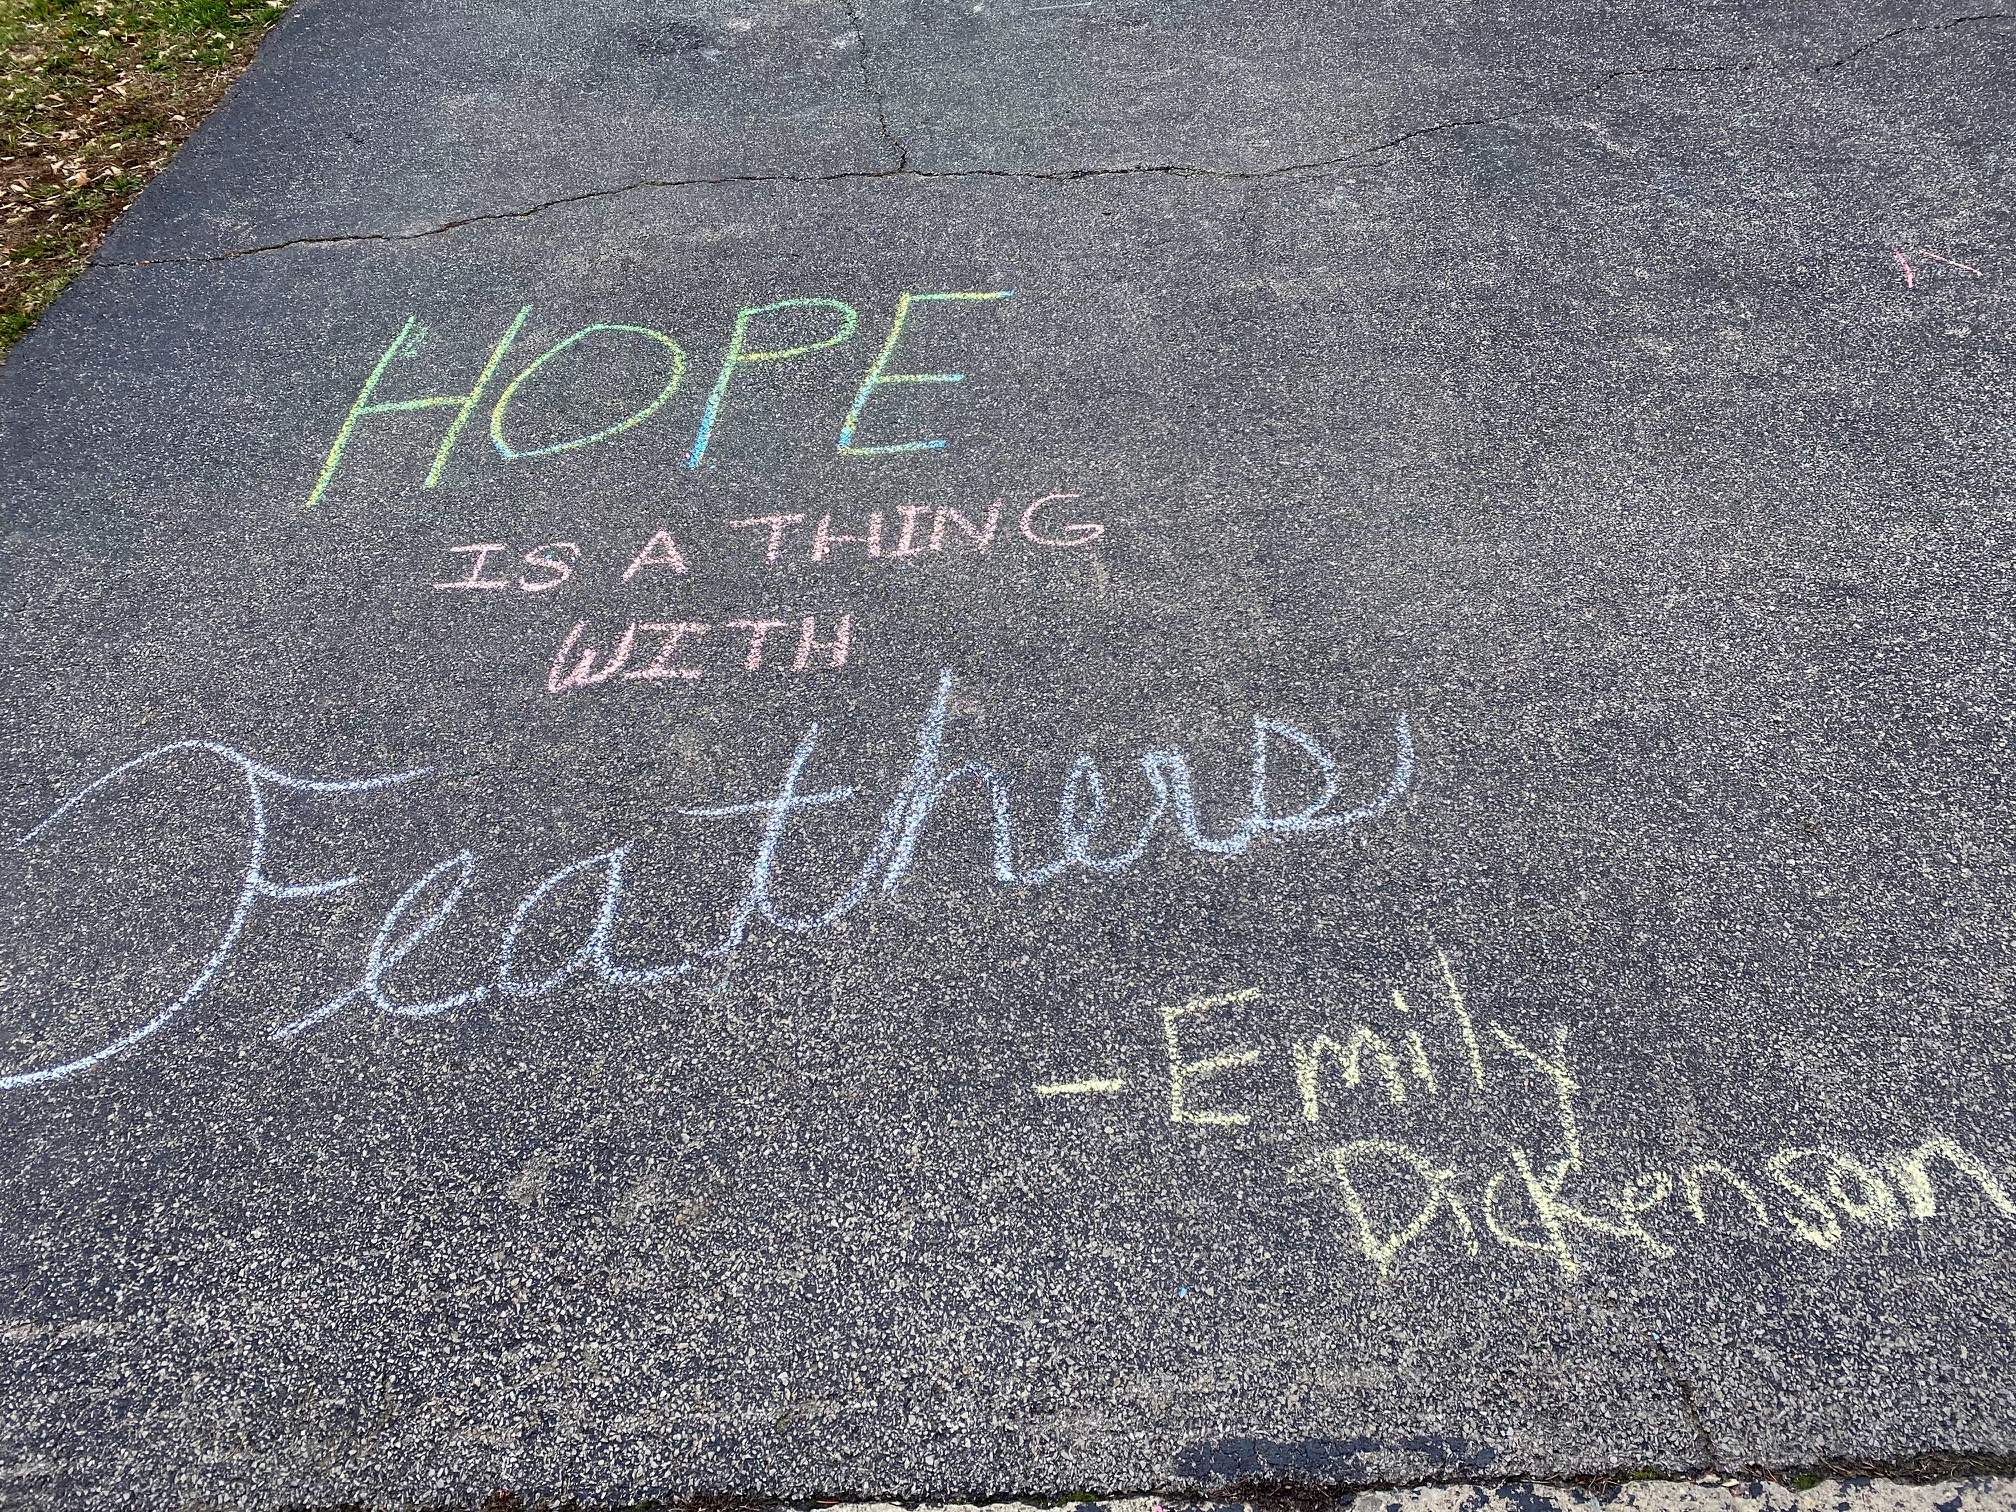 HOPE
IS A THING
WITH
Feathers
- Emily
Dickenson